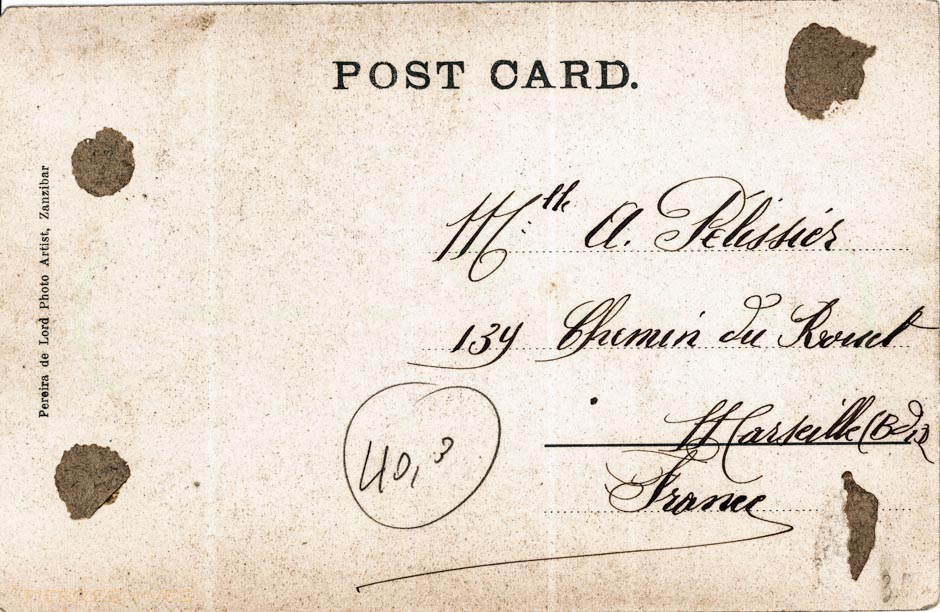 POST CARD.
Pereira de Lord Photo Artist, Zanzibar
Mlle A. Pélissier
139 Chemin du Rouet
Marseille (B d R)
France
40,3